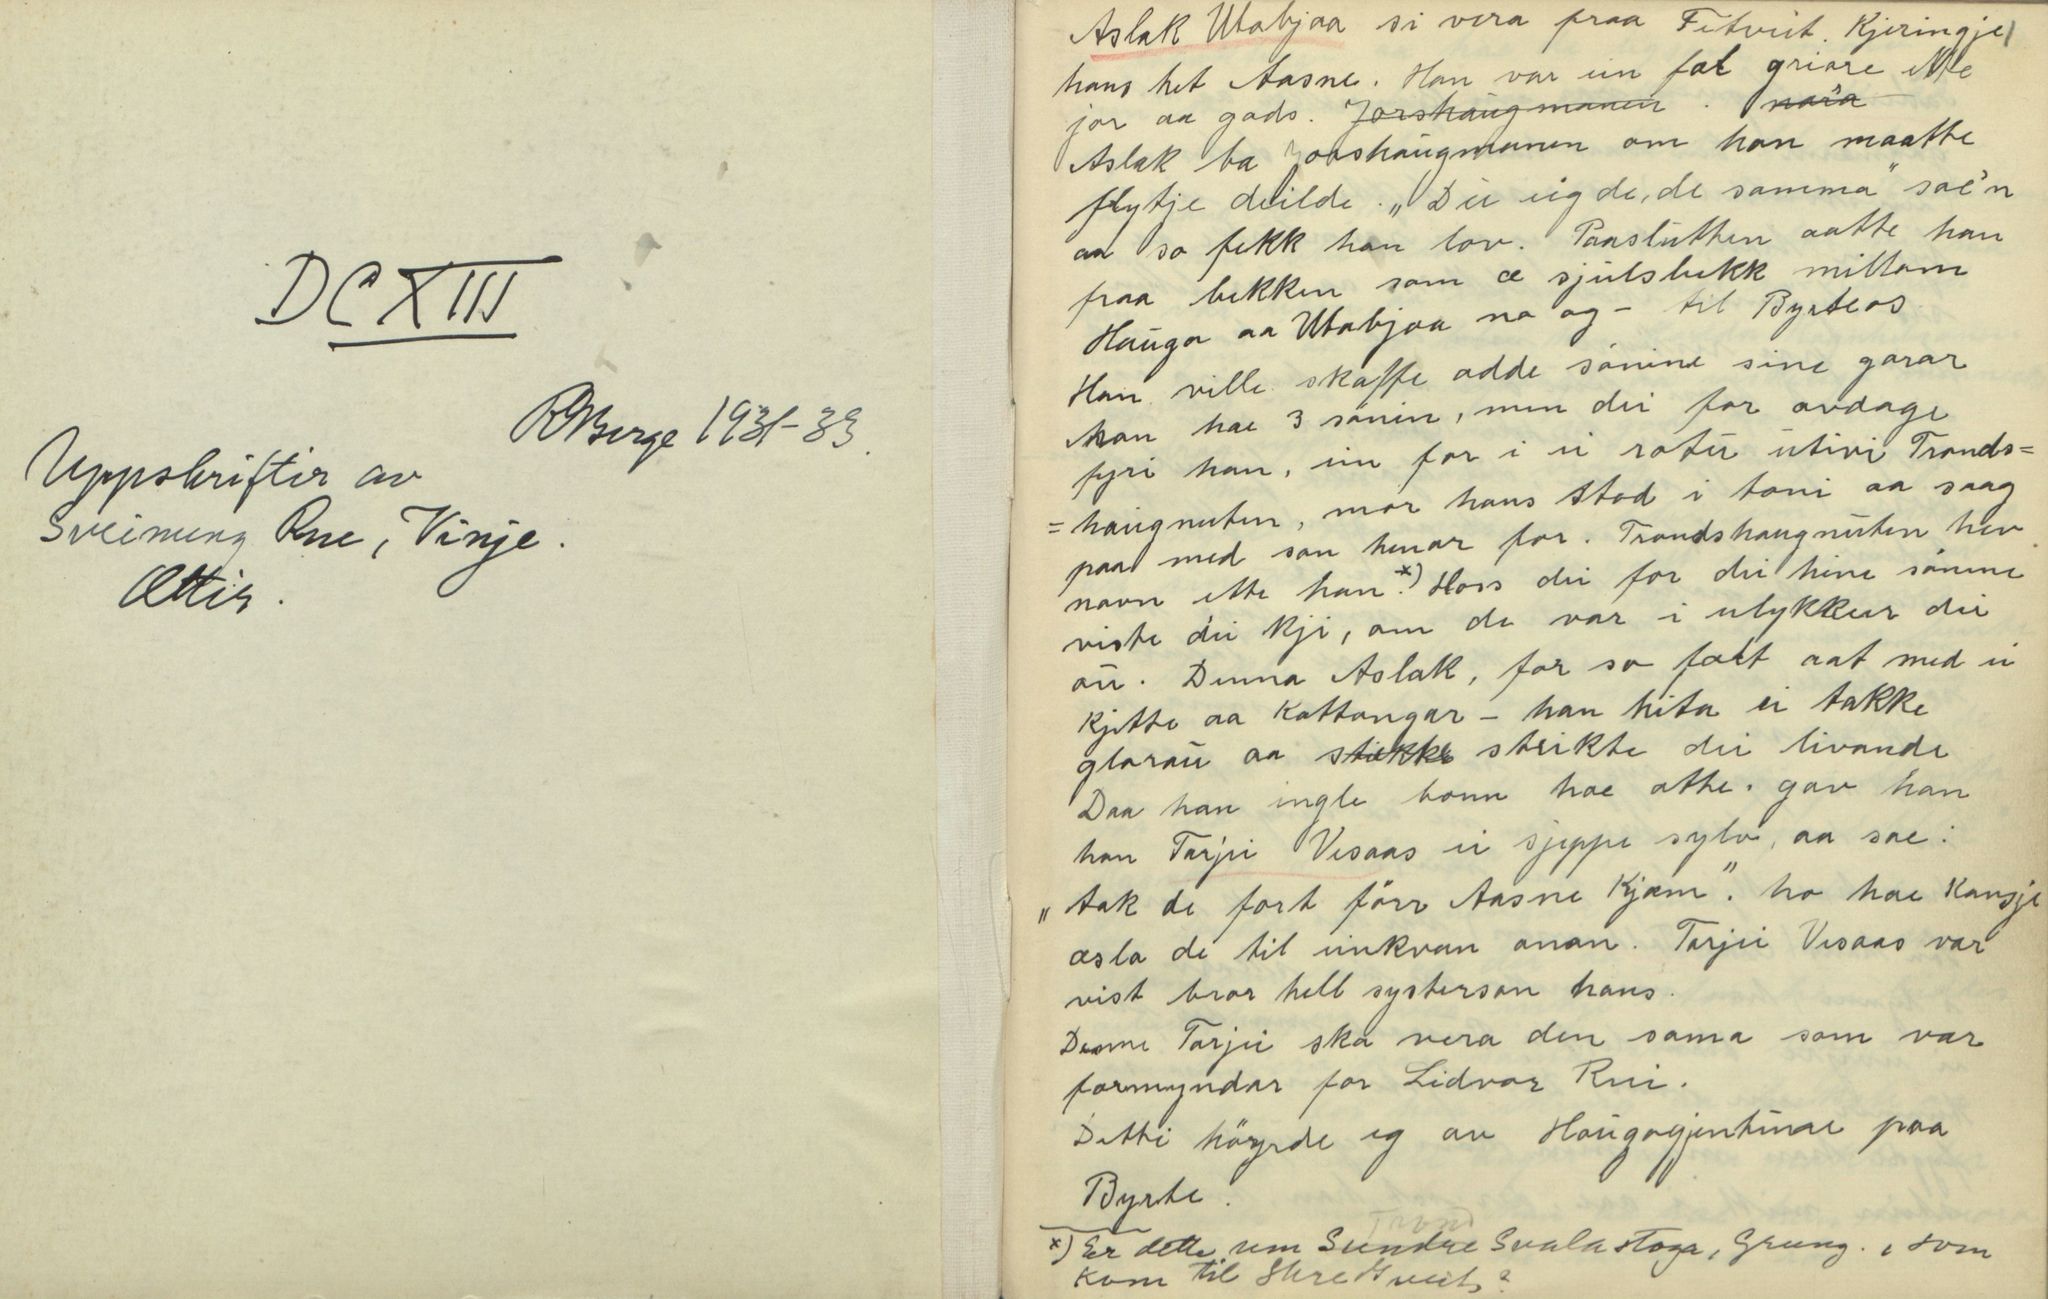 DCXIII
RBerge 1931-33.
Uppskriftir av
Sveinung Rue, Vinje.
Ættir.
Aslak Utabjaa si vera fraa Fitveit. Kjeringje
hans het Aasne. Han var ein fal griare ette
jor aa gods. Jorshaugmanen . nara
Aslak ba Jorshaugmanen om han maatte
flytje deilde. „Du eig de, de samma" sae'n
aa so fekk han lov. Paaslutten aatte han
fraa bekken som æ sjulsbekk millom
Hauga aa Utabjaa no og - til Byrteos
Han ville skaffe adde sönine sine garar
Han hae 3 sönin, men dei for avdage
fyri han, ein for i ei rotu utivi Tronds=
=haugnuten, mor hans stod i toni aa saag
paa med son henar for. Trondshaugnuten hev
navn ette han.*) Hoss dei for dei hine sönine
viste dei kji, om de var i ulykkur dei
ou. Denna Aslak, for so falt aat med ei
kjette aa kattongar - han hita ei takke
glorau aa stiekke strikte dei livande
Daa han ingle bonn hae atte. gav han
han Tarjei Vesaas ei sjeppe sylv, aa sae:
„tak de fort förr Aasne kjæm". ho hae kansje
æsla de til einkvan anan. Tarjei Vesaas var
vist bror hell systerson hans.
Denne Tarjei ska vera den sama som var
formyndar for Lidvor Rui.
Detti höyrde eg av Haugagjentunae paa
Byrte.
Trond
*) Er dette um Sundre Svalastoga, Grung., som
kom til Skredtveit?